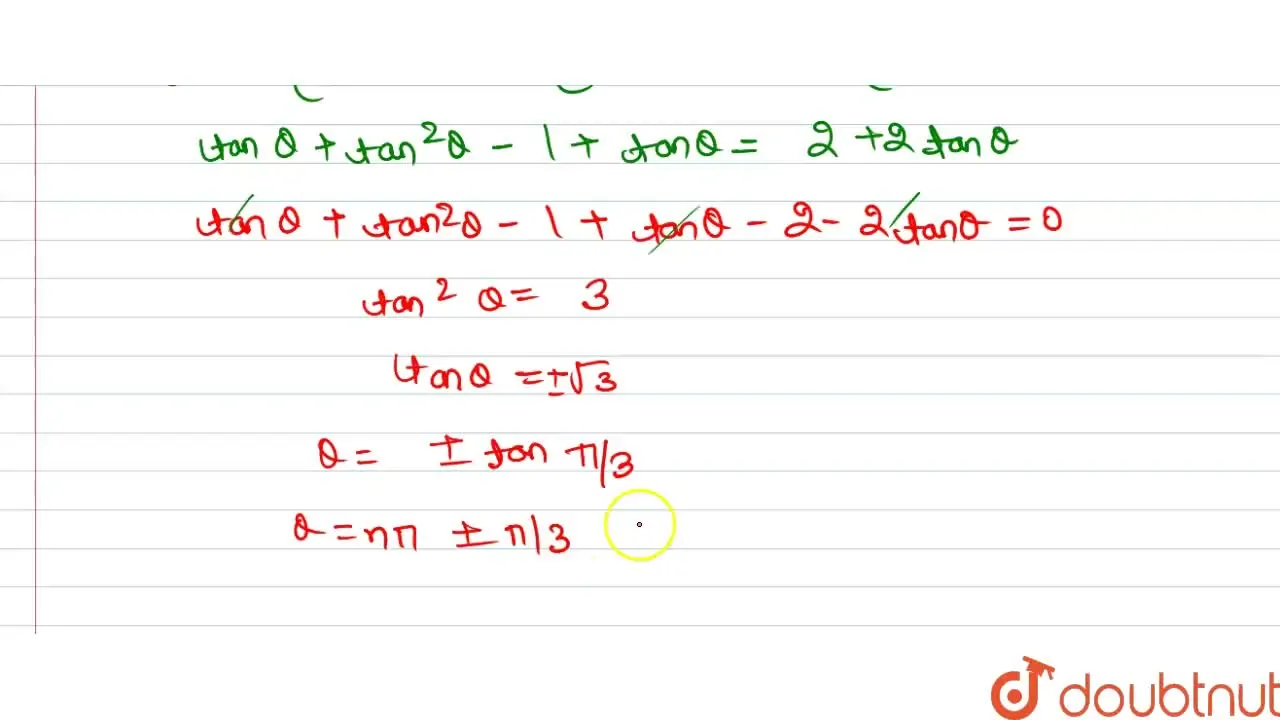 tan θ + tan²θ - 1 + tanθ = 2 + 2 tanθ
tan θ + tan²θ - 1 + tanθ - 2 - 2 tanθ = 0
tan² θ = 3
tanθ = ±√3
θ = ± tan π/3
θ = nπ ± π/3
doubtnut